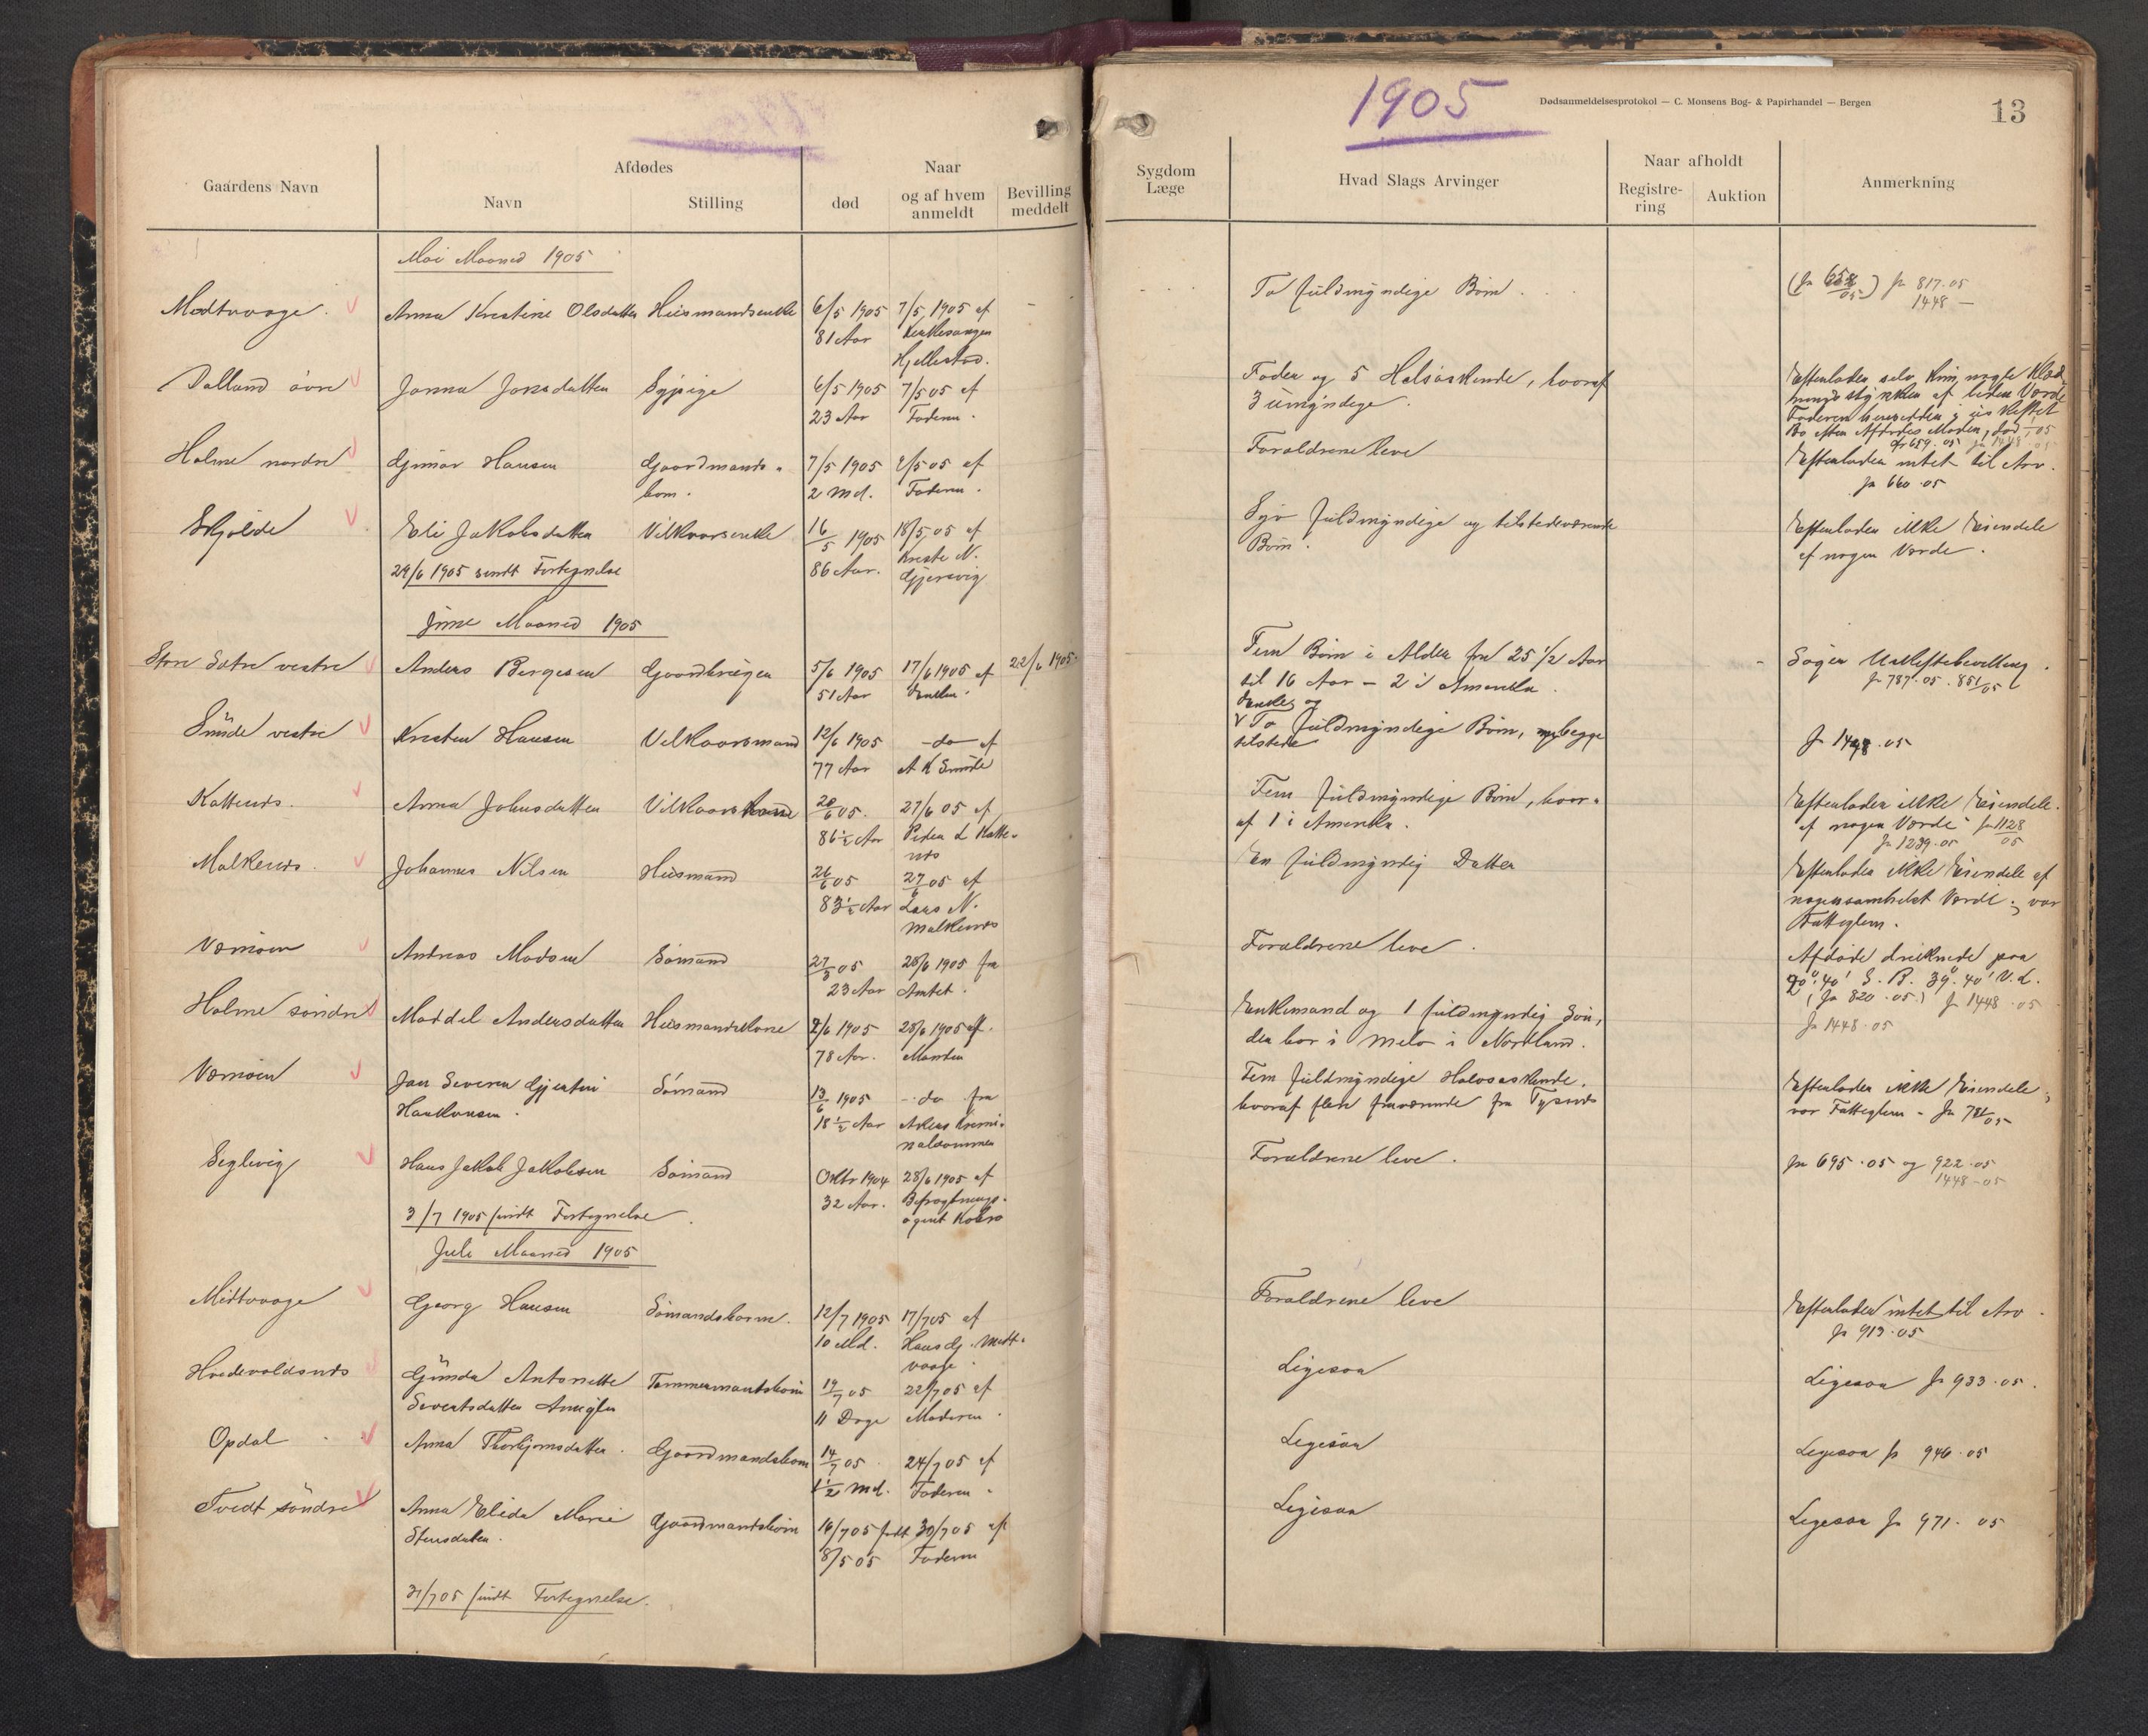 1905
Dødsanmeldelsesprotokol — C. Monsens Bog- & Papirhandel — Bergen
13
Gaardens Navn
Afdødes
Navn
Stilling
Naar
død
og af hvem anmeldt
Bevilling meddelt
Sygdom
Læge
Hvad Slags Arvinger
Naar afholdt
Registrering
Auktion
Anmerkning
Mai Maaned 1905
Midtvaage Anna Kirstine Olsdatter Husmandsenke 6/5 1905 7/5 1905 af To fuldmyndige Børn. 817.05
81 Aar Kirkesanger 1448 —
Hjellestad.
Dalland øvre Janna Jonsdatter Sypige 6/5 1905 7/5 05 af Fader og 5 Helsøskende, hvoraf
23 Aar Faderen. 3 umyndige.
Holme nordre Gunar Hansen Gaardmands- 7/5 1905 05 af Forældrene leve Efterlader intet til Arv.
barn. 2 Md. Faderen. Jr 660.05
Skjolde Eli Jakobsdatter Vilkaarsenke 16/5 1905 18/5 05 af Syv fuldmyndige og tilstedeværende Efterlader ikke Eiendele
29/6 1905 sendt Fortegnelse 86 Aar. N. Gjersvig Børn. af nogen Værdi.
Juni Maaned 1905
Store Sætre vestre Anders Børgesen Gaardbruger 5/6 1905 17/6 1905 af 22/6 1905 Fem Børn i Alder fra 25 1/2 Aar Søger Uskiftebevilling.
51 Aar Enken. til 16 Aar – 2 i Amerika. Jr 787.05. 851/05
Enke og
Sunde vestre Kristen Hansen Vilkaarsmand 12/6 1905 – do – af To fuldmyndige Børn, begge
77 Aar A K Sunde tilstede
Kattenes. Anna Johnsdatter 05. 27/6 05 af Fem fuldmyndige Børn, hvor- Efterlader ikke Eiendele
86 1/2 Aar Peder L Katte- af 1 i Amerika. af nogen Værdi Jr 1128/05
næs Jr 1239.05
Malkenes. Johannes Nilsen Husmand 26/6 05 27/6 05 af En fuldmyndig Datter Efterlader ikke Eiendele af
83 1/2 Aar Lars N. nogensomhelst Værdi; var
Malkenes Fattiglem.
Andreas Madsen Sømand 27/3 05 28/6 1905 fra Forældrene leve. Afdøde druknede paa
23 Aar Amtet. 40' S. B. 39°.40' V. L.
(Jr 820.05) Jr 1448.05
Holme søndre Maddel Andersdatter Husmandskone /6 1905 28/6 1905 af Enkemand og 1 fuldmyndig Søn, Jr 1448.05
78 Aar. Manden der bor i Melø i Nordland.
Jan Severin Gjertin Sømand 13/6 1905 – do fra Fem fuldmyndige Halvsøskende. Efterlader ikke Eiendele;
Haakonsen. 18 1/2 Aar Akers Krimi- hvoraf flere fraværende fra Tysnes var Fattiglem –
naldommer
Seglevig Hans Jakob Jakobsen Sømand Oktbr 1904 28/6 1905 af Forældrene leve. Jr 695.05 og 922.05
32 Aar. Befragtnings- 1448–05
agent
3/7 1905 sendt Fortegnelse.
Juli Maaned 1905
Midtvaage Georg Hansen Sømandsbarn. 12/7 1905 17/7 05 af Forældrene leve Efterlader intet til Arv.
10 Md. Hans G. Midt- Jr 913.05
vaage.
Hvedevoldsnes Gunda Antonette Tømmermandsbarn 19/7 05 22/7 05 af Ligesaa Ligesaa Jr 933.05.
Sivertsdatter 11 Dage Moderen.
Opdal Anna Thorbjørnsdatter. Gaardmandsbarn 14/7 05 24/7 05 af Ligesaa Ligesaa Jr 946.05
1 1/2 Md. Faderen.
Tvedt søndre Anna Elida Marie Gaardmandsbarn 16/7 05 født 30/7 05 af Ligesaa Ligesaa Jr 971.05
Stensdatter. 8/5 05 Faderen
31/7 05 sendt Fortegnelse.